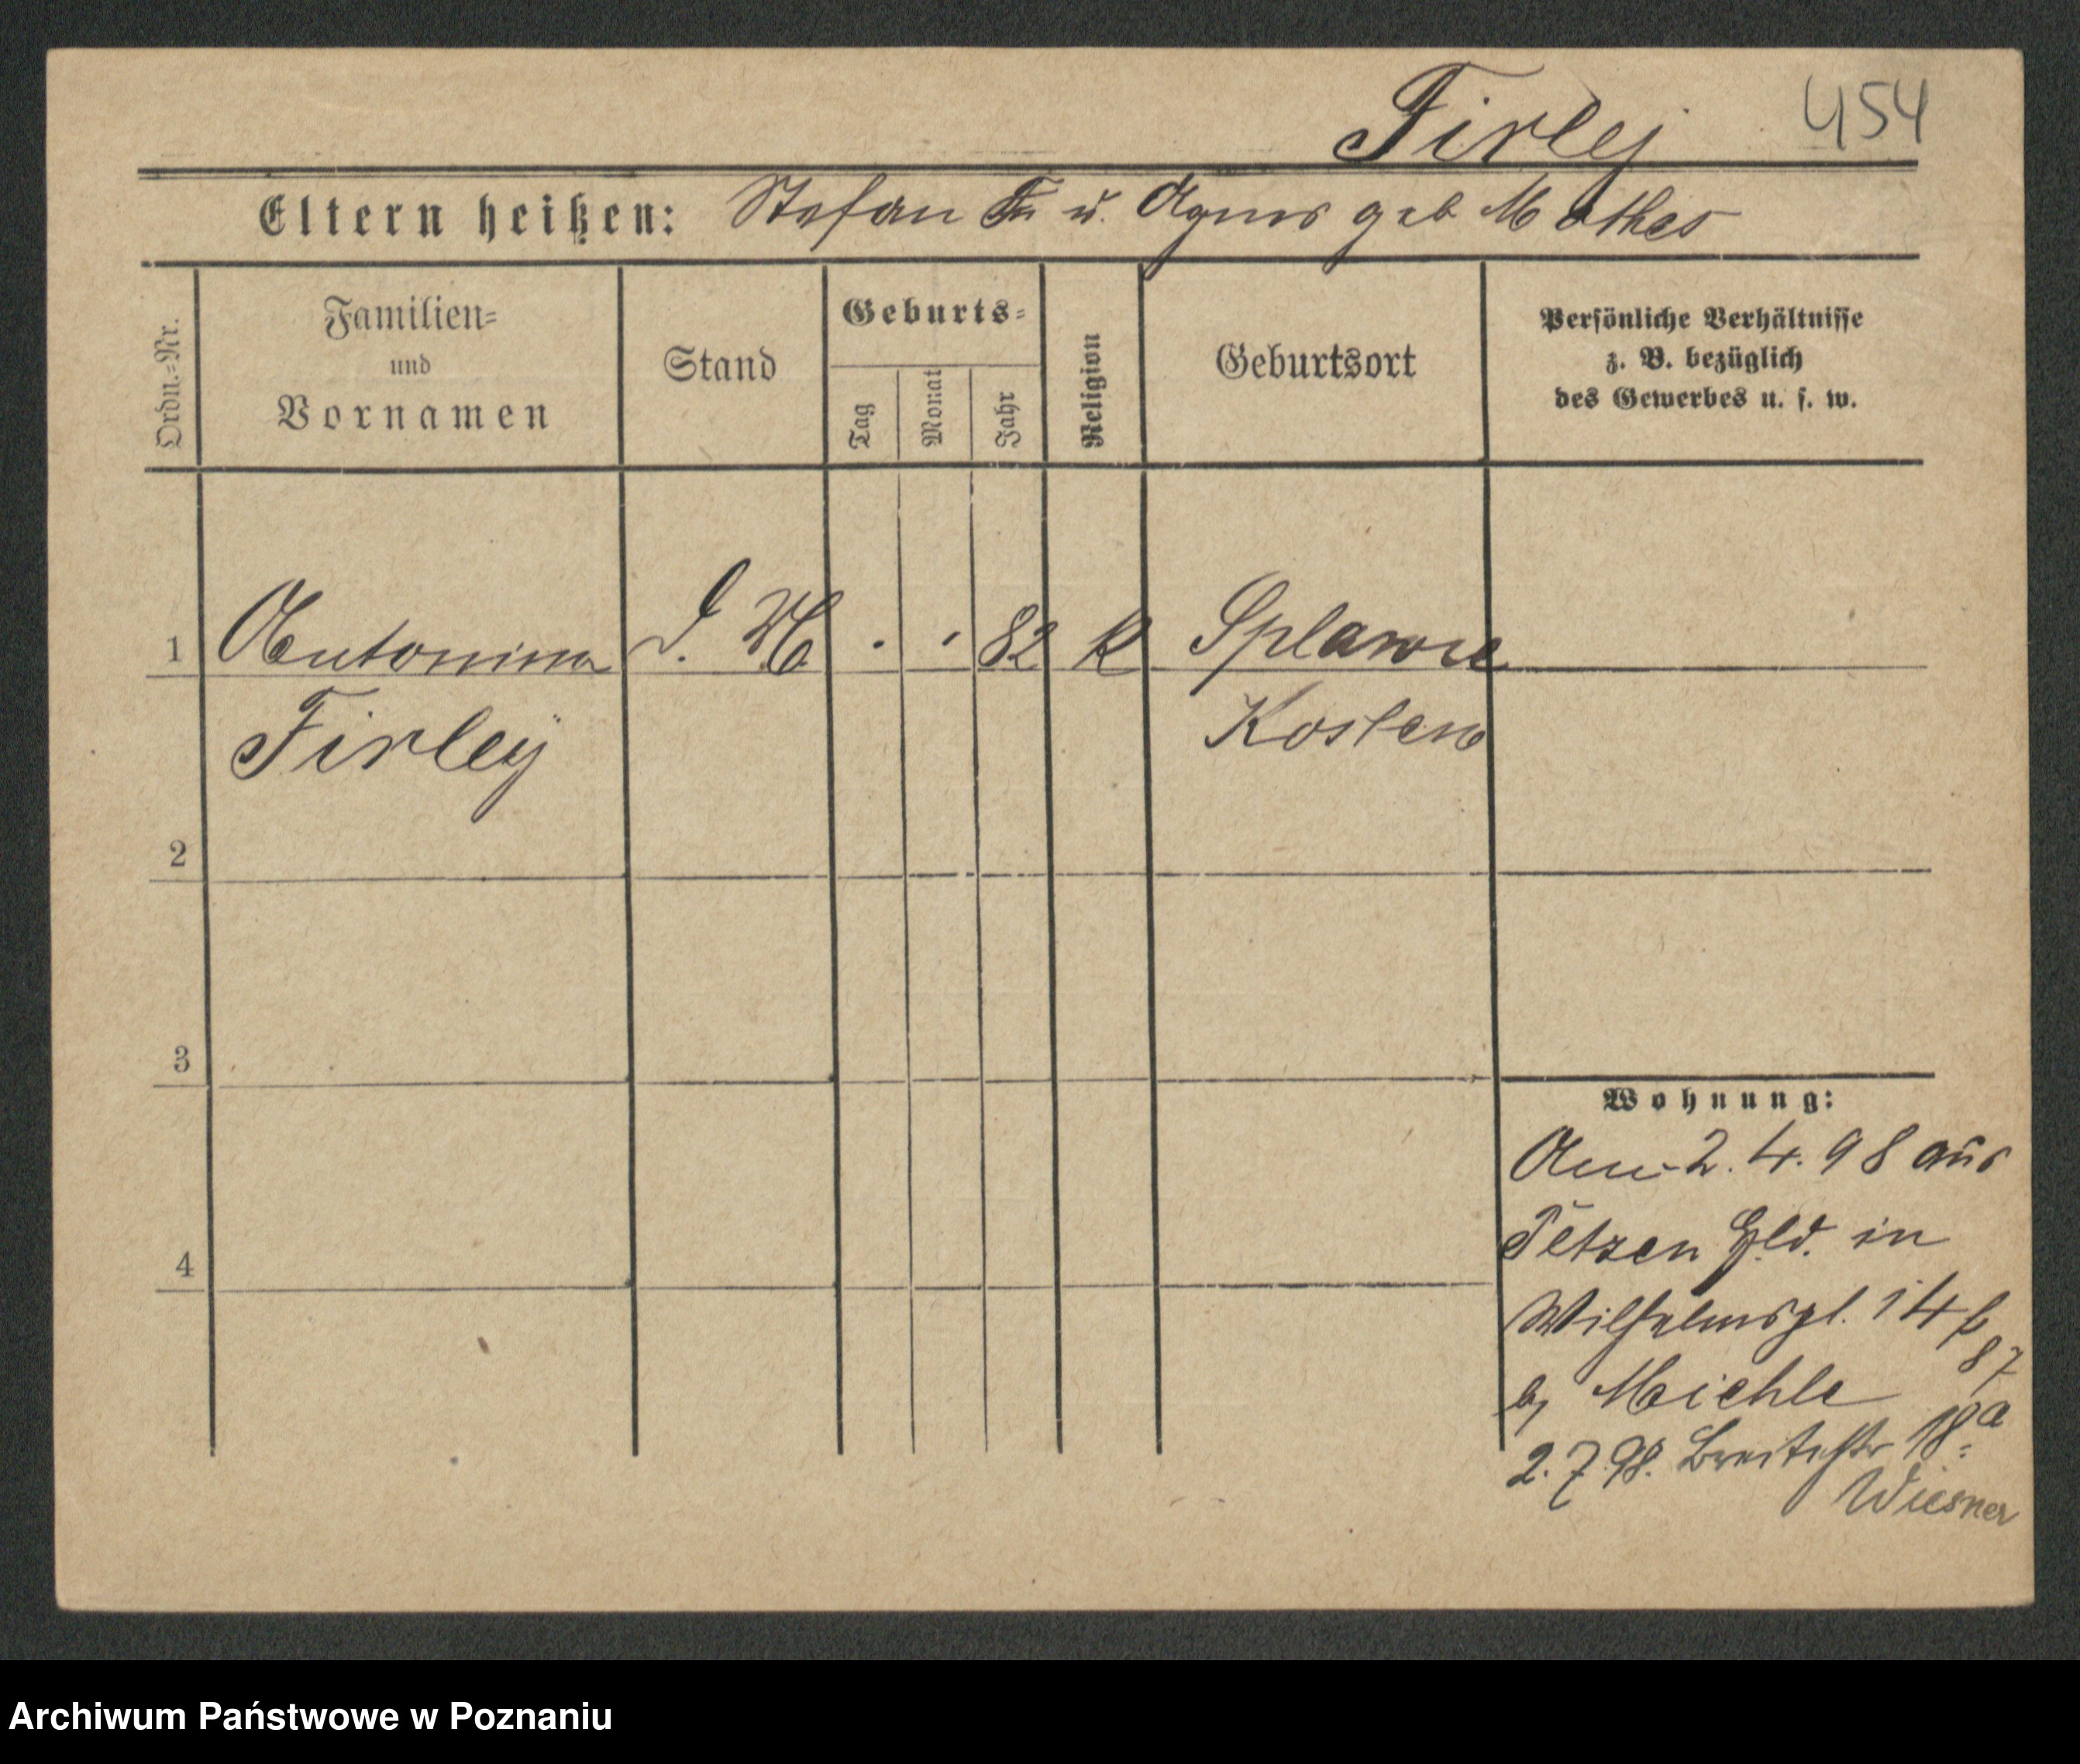 Firlej 454
Eltern heißen: Stefan F. u. Agnes geb Mathes
Ordn.-Nr.
Familien-
und
Vornamen
Stand
Geburts-
Tag
Monat
Jahr
Religion
Geburtsort
Persönliche Verhältnisse
z. B. bezüglich
des Gewerbes u. s. w.
1 Antonina D. M. 82 k Splawie
Firley Kosten
2
3
4
Wohnung:
Am 2. 4. 98 aus
in
Wilhelmspl. 14
87
2. 7. 98. Breitestr 18a
Wiesner
Archiwum Państwowe w Poznaniu